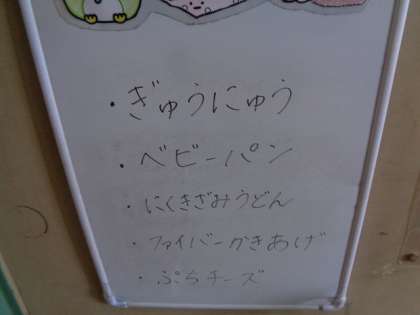 ・ぎゅうにゅう
・ベビーパン
・にくきざみうどん
・ファイバーかきあげ
・ぷちチーズ